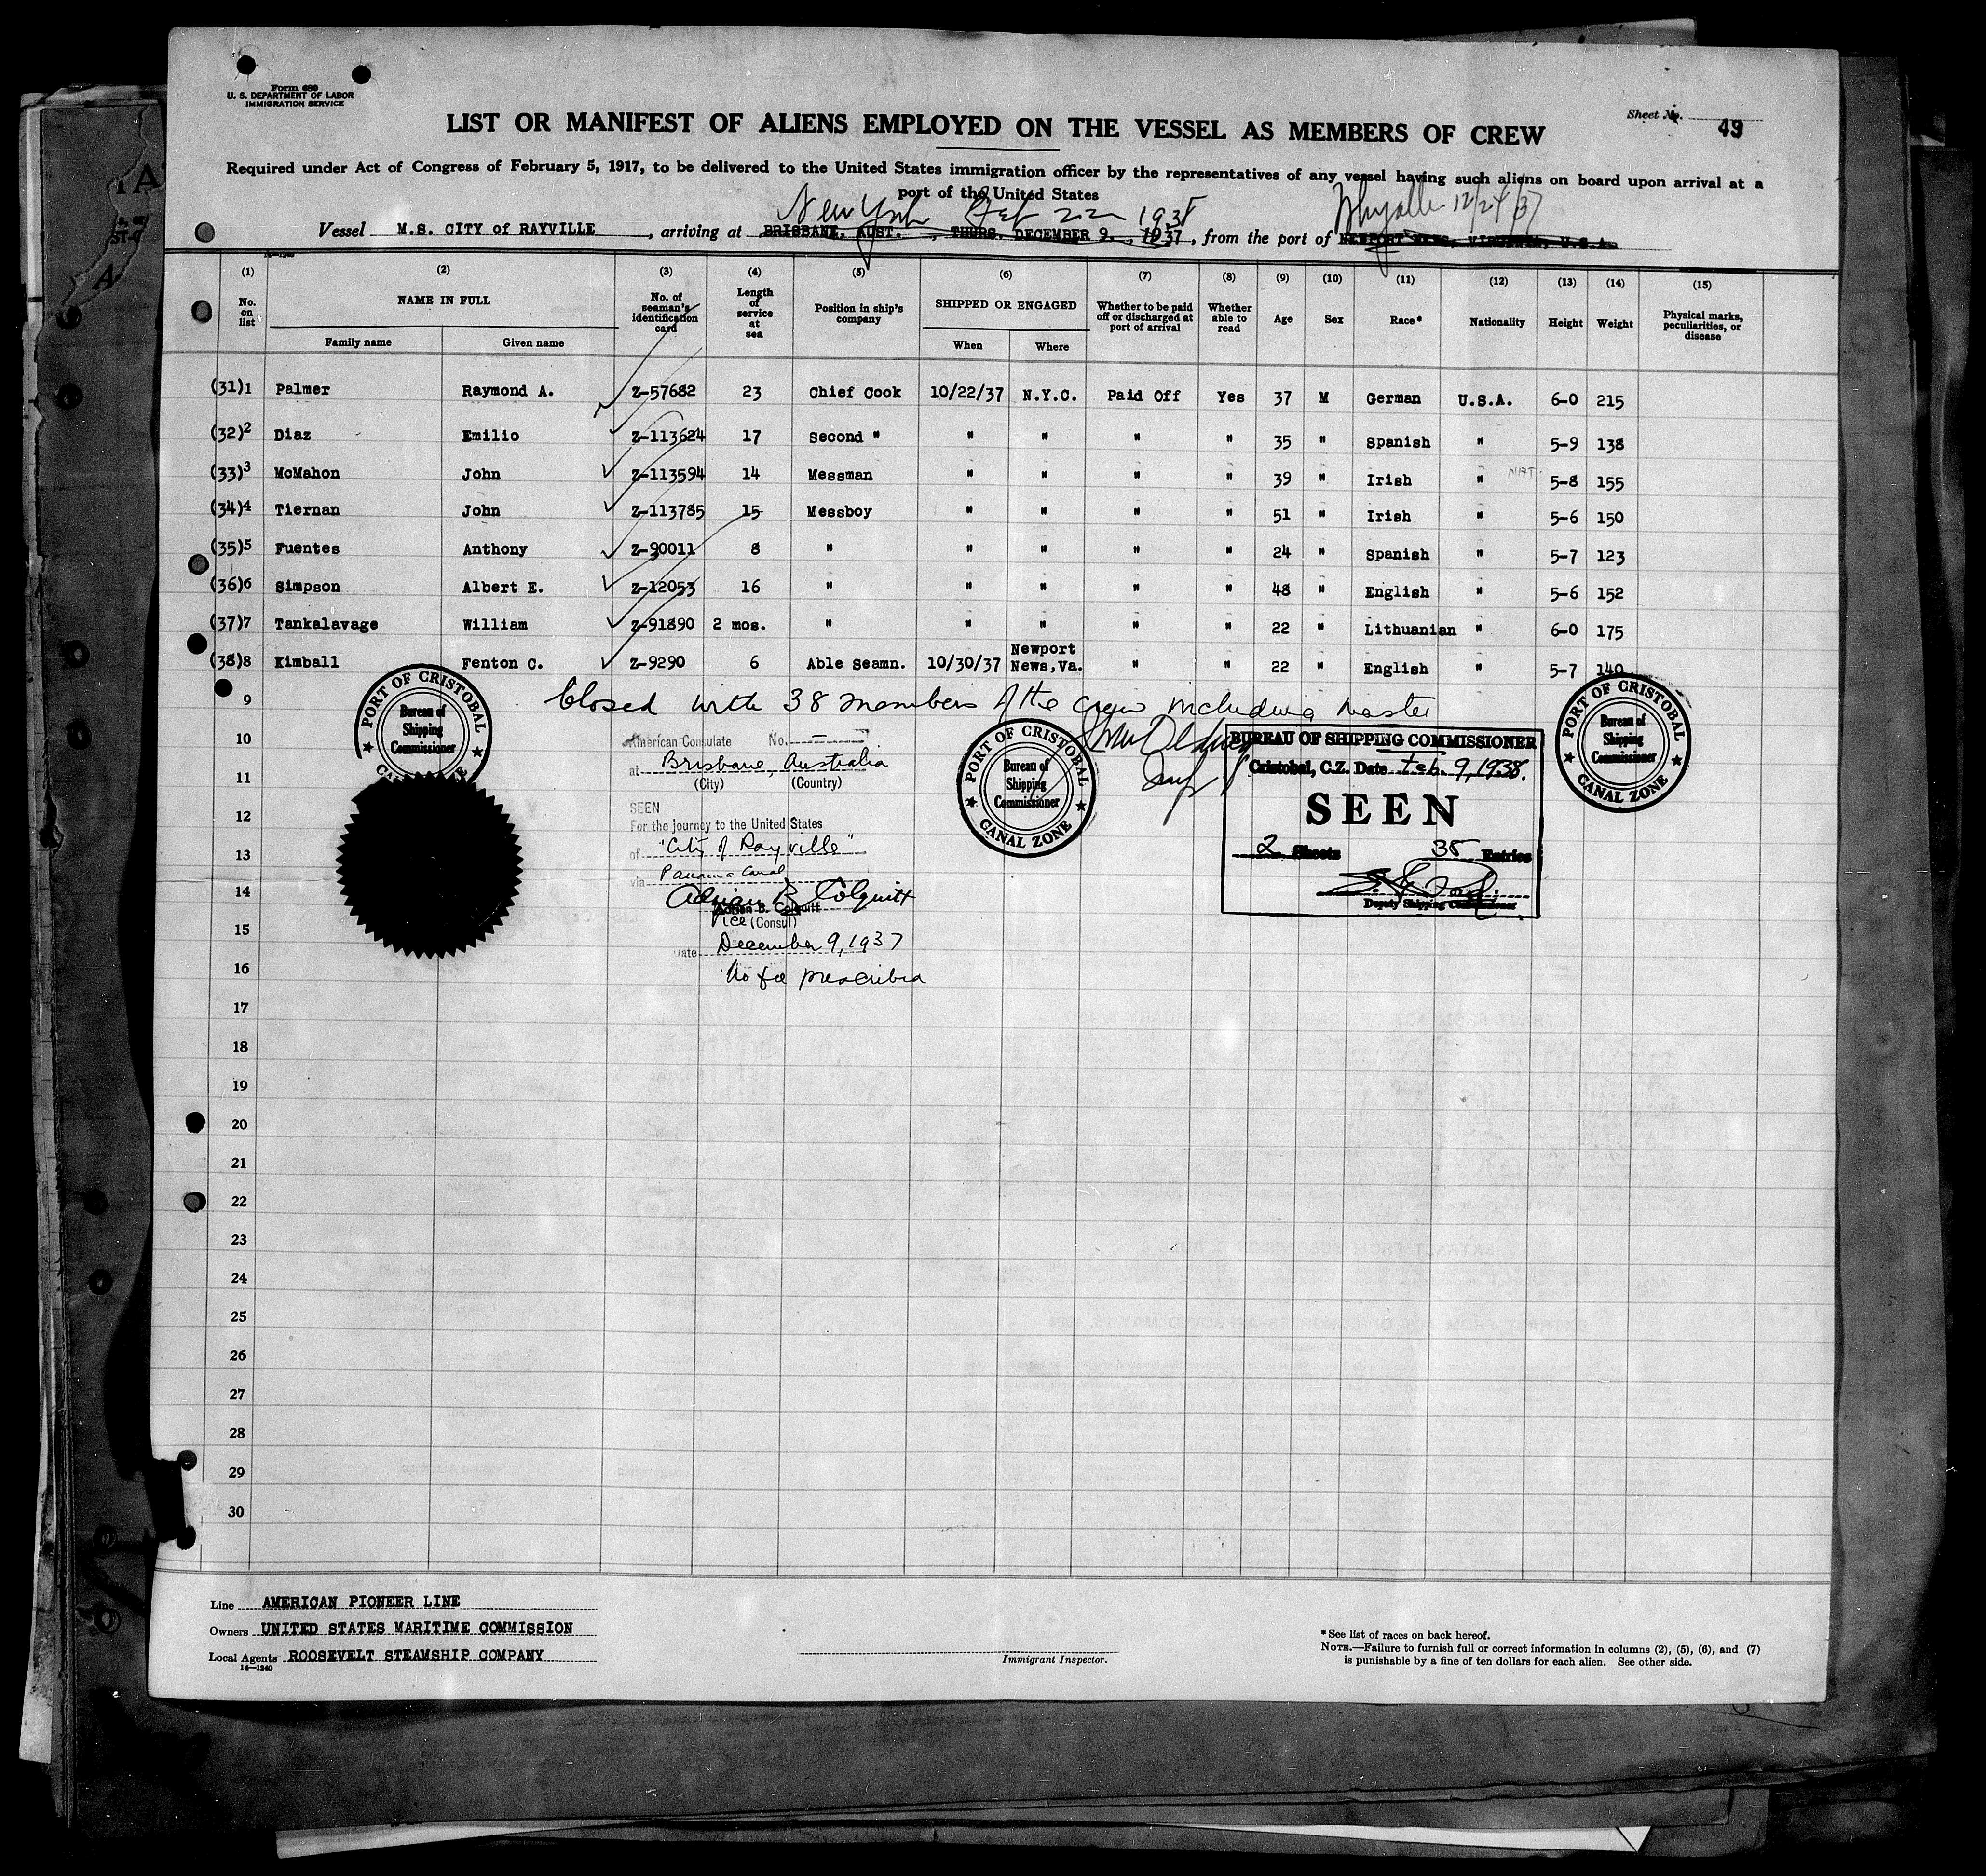 Form 680
U. S. DEPARTMENT OF LABOR
IMMIGRATION SERVICE
Sheet No. 49
LIST OR MANIFEST OF ALIENS EMPLOYED ON THE VESSEL AS MEMBERS OF CREW
Required under Act of Congress of February 5, 1917, to be delivered to the United States immigration officer by the representatives of any vessel having such aliens on board upon arrival at a
port of the United States
New York Feb 22 1938 Whyalla 12/24/37
Vessel M.S. CITY of RAYVILLE, arriving at BRISBANE, AUST., THURS. DECEMBER 9, 1937, from the port of NEWPORT NEWS, VIRGINIA, U.S.A.
14—1240
(1) (2) (3) (4) (5) (6) (7) (8) (9) (10) (11) (12) (13) (14) (15)
No. on list NAME IN FULL Family name Given name No. of seaman's identification card Length of service at sea Position in ship's company SHIPPED OR ENGAGED When Where Whether to be paid off or discharged at port of arrival Whether able to read Age Sex Race* Nationality Height Weight Physical marks, peculiarities, or disease
(31)1 Palmer Raymond A. Z-57682 23 Chief Cook 10/22/37 N.Y.C. Paid Off Yes 37 M German U.S.A. 6-0 215
(32)2 Diaz Emilio Z-113624 17 Second " " " " " 35 " Spanish " 5-9 138
(33)3 McMahon John Z-113594 14 Messman " " " " 39 " Irish " NAT 5-8 155
(34)4 Tiernan John Z-113785 15 Messboy " " " " 51 " Irish " 5-6 150
(35)5 Fuentes Anthony Z-90011 8 " " " " " 24 " Spanish " 5-7 123
(36)6 Simpson Albert E. Z-12053 16 " " " " " 48 " English " 5-6 152
(37)7 Tankalavage William Z-91890 2 mos. " " " " " 22 " Lithuanian " 6-0 175
(38)8 Kimball Fenton C. Z-9290 6 Able Seamn. 10/30/37 Newport News, Va. " " 22 " English " 5-7 140
9 Closed with 38 members of the crew including master
PORT OF CRISTOBAL
Bureau of
Shipping
Commissioner
CANAL ZONE
10 American Consulate No. —
11 at Brisbane, Australia
(City) (Country)
12 SEEN
For the journey to the United States
13 of "City of Rayville"
via Panama Canal
14 Adrian B. Colquitt
Adrian B. Colquitt
15 Vice (Consul)
Date December 9, 1937
16 No fee prescribed
PORT OF CRISTOBAL
Bureau of
Shipping
Commissioner
CANAL ZONE
BUREAU OF SHIPPING COMMISSIONER
Cristobal, C.Z. Date Feb. 9, 1938.
SEEN
2 Sheets 38 Entries
Deputy Shipping Commissioner
PORT OF CRISTOBAL
Bureau of
Shipping
Commissioner
CANAL ZONE
17
18
19
20
21
22
23
24
25
26
27
28
29
30
Line AMERICAN PIONEER LINE
Owners UNITED STATES MARITIME COMMISSION
Local Agents ROOSEVELT STEAMSHIP COMPANY
14—1240
Immigrant Inspector.
* See list of races on back hereof.
NOTE.—Failure to furnish full or correct information in columns (2), (5), (6), and (7)
is punishable by a fine of ten dollars for each alien. See other side.